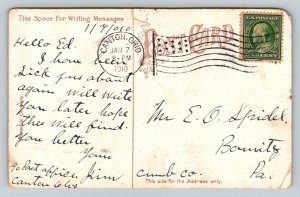 This Space For Writing Messages
1/7/010
Hello Ed.
I have been
Sick for about
again will write
You later hope
this will find
You better
Yours
Jim
Canton Ohio
CANTON, OHIO
JAN 7
PM
1910
POST CARD
U.S. POSTAGE
Mr. E. O. Speidel
Co.
Pa.
This side for the Address only.